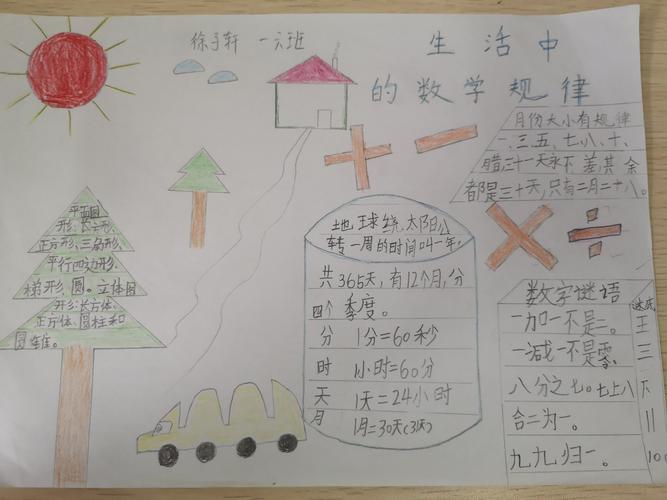 徐子轩 一六班
生活中
的数学规律
月份大小有规律
一、三、五、七、八、十、
腊三十一天永不差,其余
都是三十天,只有二月二十八。
平面图
形:长方形、
正方形、三角形、
平行四边形、
梯形、圆。立体图
形:长方体、
正方体、圆柱和
圆锥。
地球绕太阳公
转一周的时间叫一年,
共365天,有12个月,分
四个季度。
分 1分=60秒
时 1小时=60分
天 1天=24小时
月 1月=30天(31天)
数字谜语
一加一不是二。 王
一减一不是零。 三
八分之七。七上八下
合二为一。
九九归一。 100